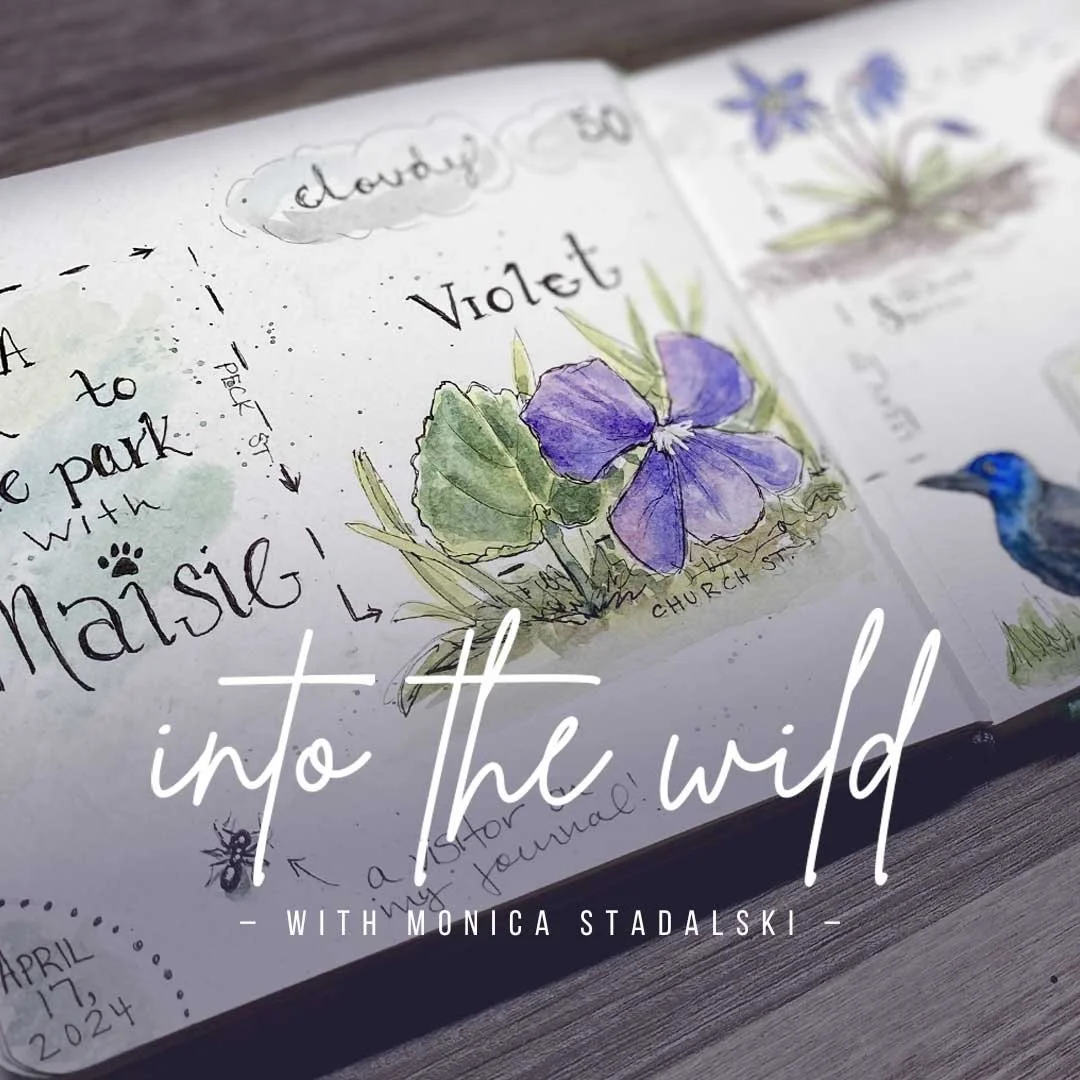 cloudy
50
Violet
A
to
park
with
Maisie
PECK ST
CHURCH ST.
into the wild
a visitor on
my journal!
– WITH MONICA STADALSKI –
APRIL
17,
2024